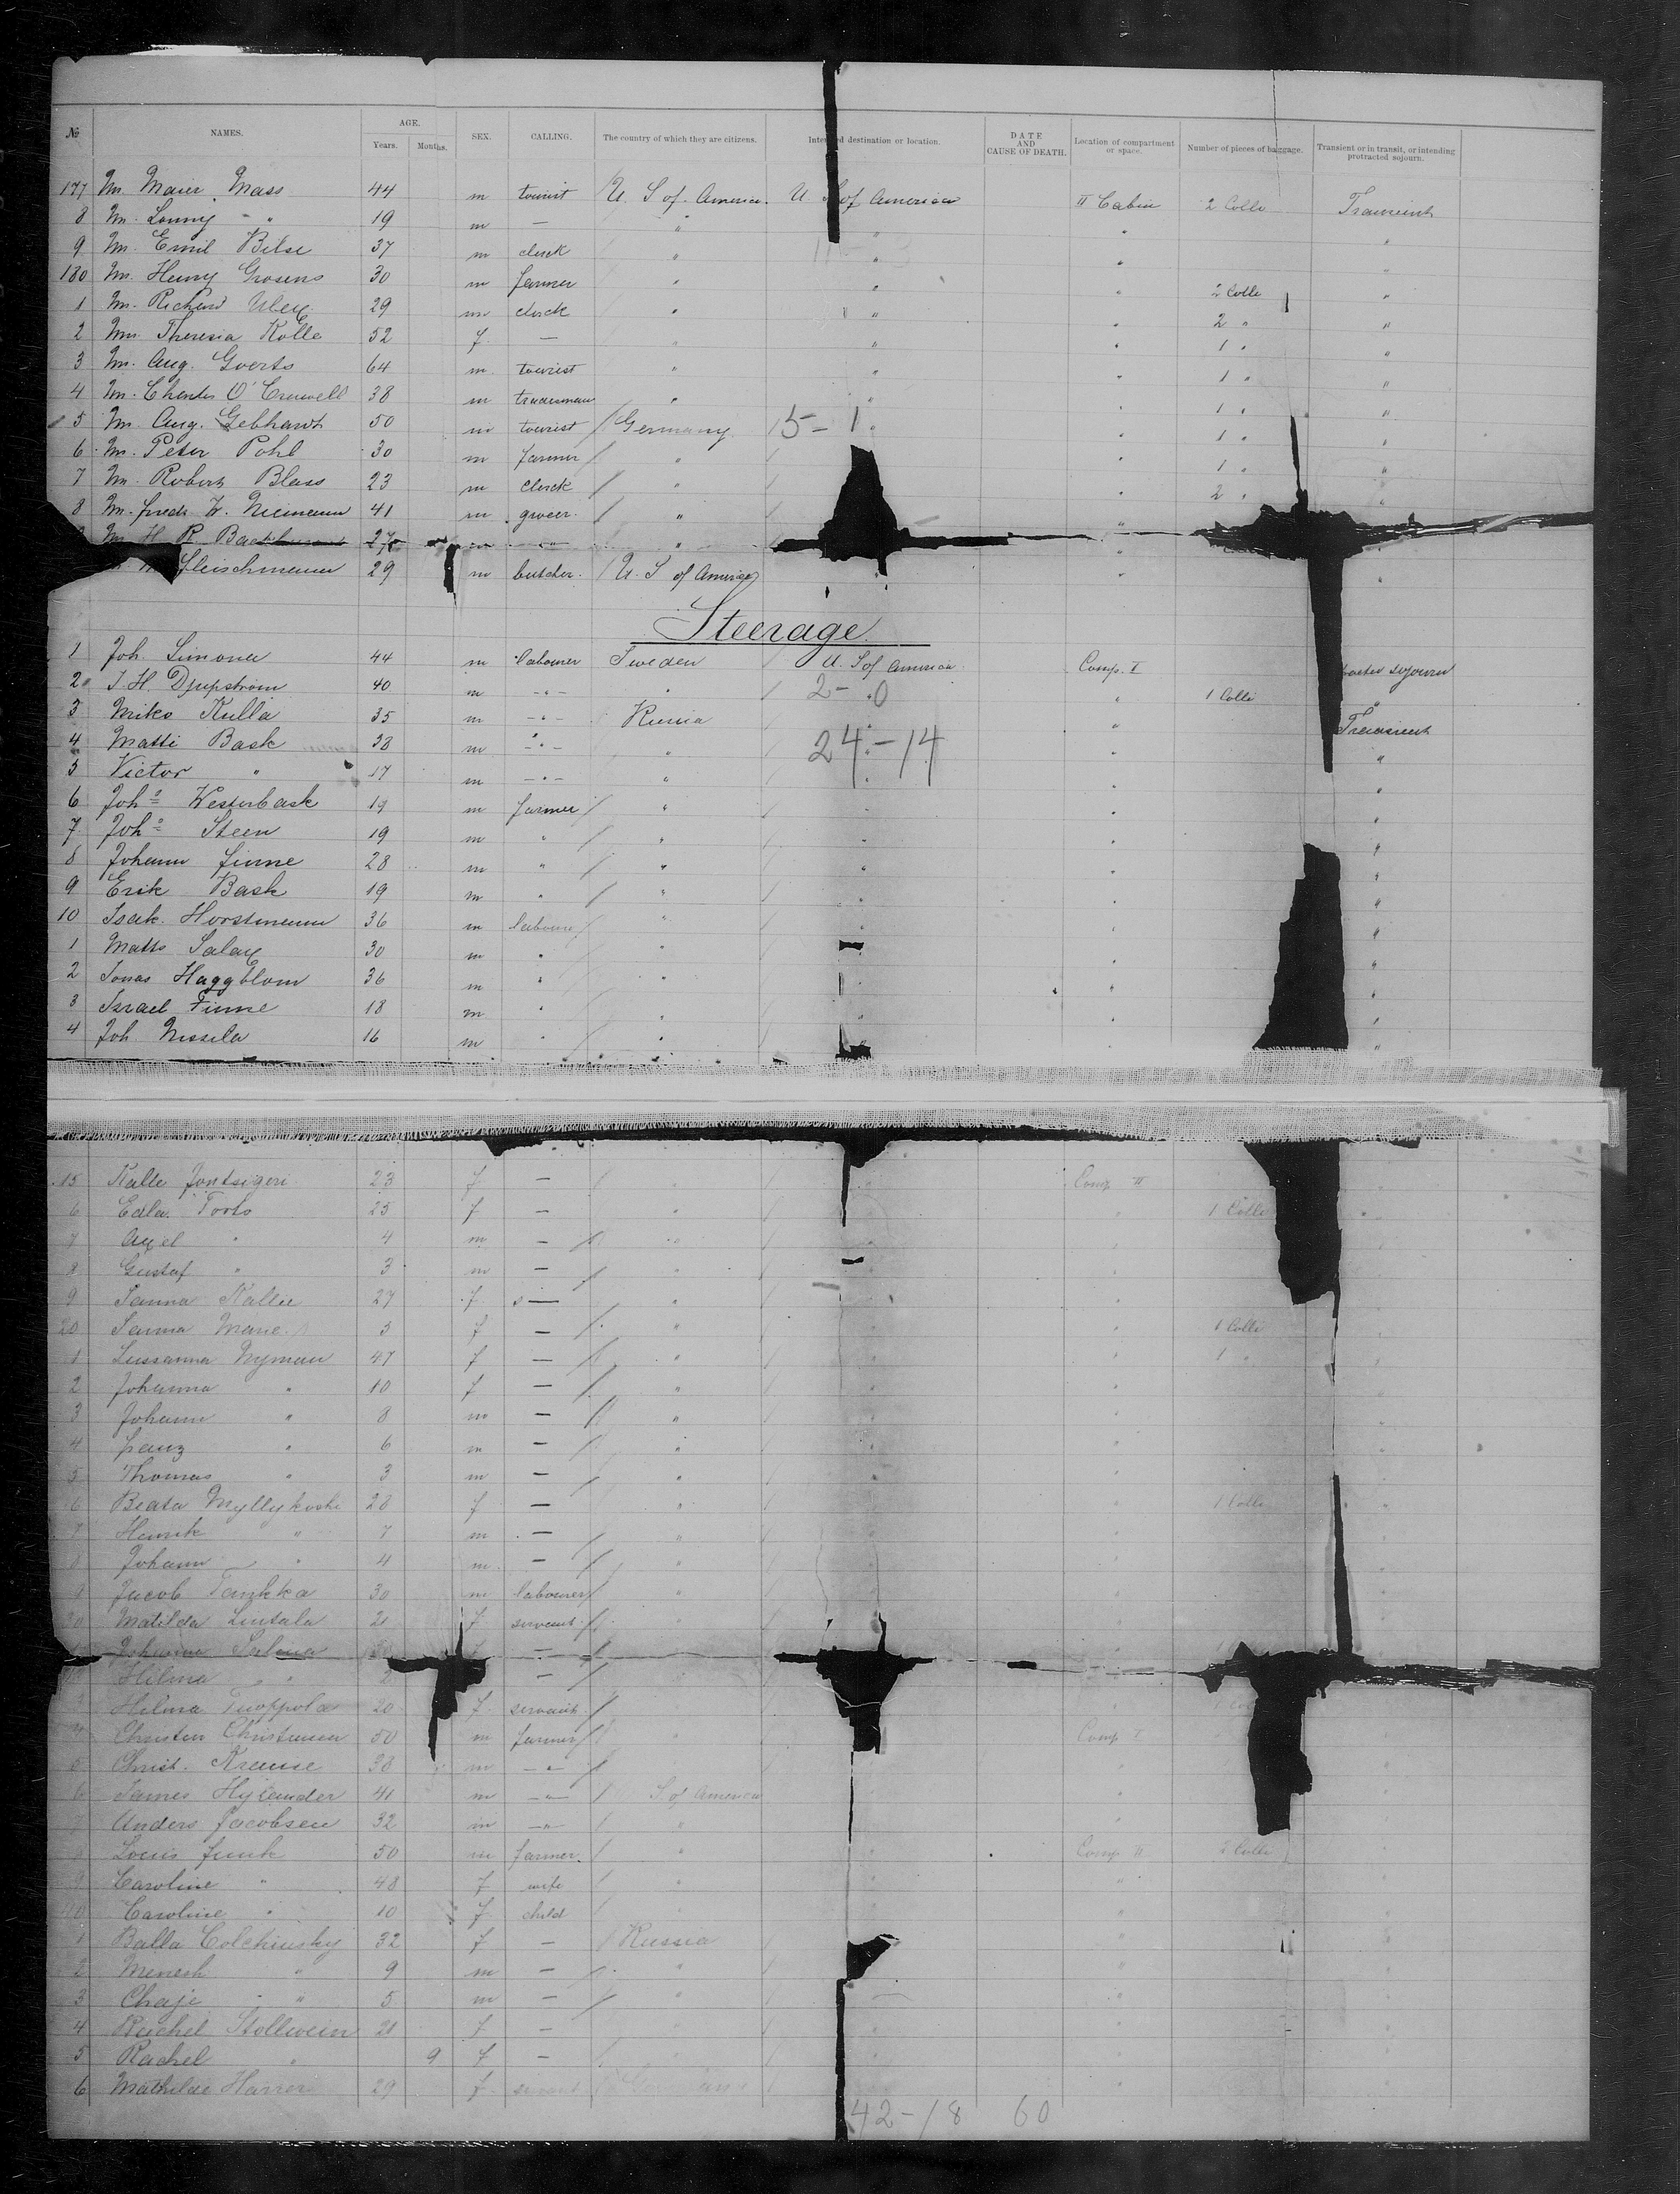 № NAMES. AGE. Years. Months. SEX. CALLING. The country of which they are citizens. Intended destination or location. DATE AND CAUSE OF DEATH. Location of compartment or space. Number of pieces of baggage. Transient or in transit, or intending protracted sojourn.
177 Mr. Maier Mass 44 m tourist U. S of America. U. S of America II Cabin 2 Colli Transient
8 Mr. " 19 m — " " " "
9 Mr. Emil Bilse 37 m clerk " " " "
180 Mr. Henry Grosens 30 m farmer " " " 2 Colli "
1 Mr. Richard 29 m clerk " " " 2 " "
2 Mrs Theresia Kolle 52 f — " " " 1 " "
3 Mr. Aug. Goerts 64 m tourist " " " 1 " "
4 Mr. Charles O' 38 m tradesman " " " 1 " "
5 Mr. Aug. Gebhardt 50 m tourist Germany 5 - 1 " 1 " "
6 Mr. Peter Pohl 30 m farmer " " 1 " "
7 Mr. Robert Blass 23 m clerk " " 2 " "
8 Mr. Fredr W. Niemann 41 m grocer " "
Mr. H. R. 27 m " "
Fleischmann 29 m butcher. U. S of America " "
Steerage.
1 Joh. Simona 44 m labourer Sweden U. S of America Comp. I sojourn
2 J. H. Djupström 40 m - " - " 2 - 0 " 1 Colli "
3 Miko Kulla 35 m - " - Russia " " Transient
4 Matti Bask 38 m - " - " 24 - 14 " "
5 Victor " 17 m - " - " " " "
6 Joh. Westerbask 19 m farmer " " " "
7 Joh. Steen 19 m " " " " "
8 Johann Finne 28 m " " " " "
9 Erik Bask 19 m " " " " "
10 Isak Horstmann 36 m labourer " " " "
1 Matts 30 m " " " " "
2 Jonas Haggblom 36 m " " " "
3 Israel Finne 18 m " " " "
4 Joh Nissila 16 m " " " "
15 Kalle 23 f — " " Comp II
6 Edla Torts 25 f — " " " 1 Colli "
7 Axel " 4 m — " " "
8 Gustaf " 3 m — " "
9 Sanna Kallie 27 f — " " "
20 Sanna 3 f — " " " 1 Colli
1 Sussanna Nyman 47 f — " " " 1 " "
2 Johanna " 10 f — " " "
3 Johann " 8 m — " " "
4 Franz " 6 m — " " " "
5 Thomas " 3 m — " " "
6 Beata Myllykoski 28 f — " " " 1 Colli "
7 Henrik " 7 m — " " "
8 Johann " 4 m — " " "
9 Jacob 30 m labourer " " "
30 Matilda Lintala 21 f servant " "
Johanna f —
Hilma " 2 — "
Hilma 20 f servant "
4 Christen 50 m farmer " Comp I
5 Christ. Krause 38 m - " - "
6 James 41 m - " - S of America "
7 Anders Jacobsen 32 m - " - " "
8 Louis Funk 50 m farmer. " Comp II 2 Colli
9 Caroline " 48 f wife " "
40 Caroline " 10 f child "
1 Balla Colchinsky 32 f — Russia "
2 Menesh " 9 m — " "
3 Chaje " 5 m — " "
4 Rachel Stollwein 21 f — "
5 Rachel " 9 f — "
6 Mathilde Harrer 29 f servant "
42 - 18 60